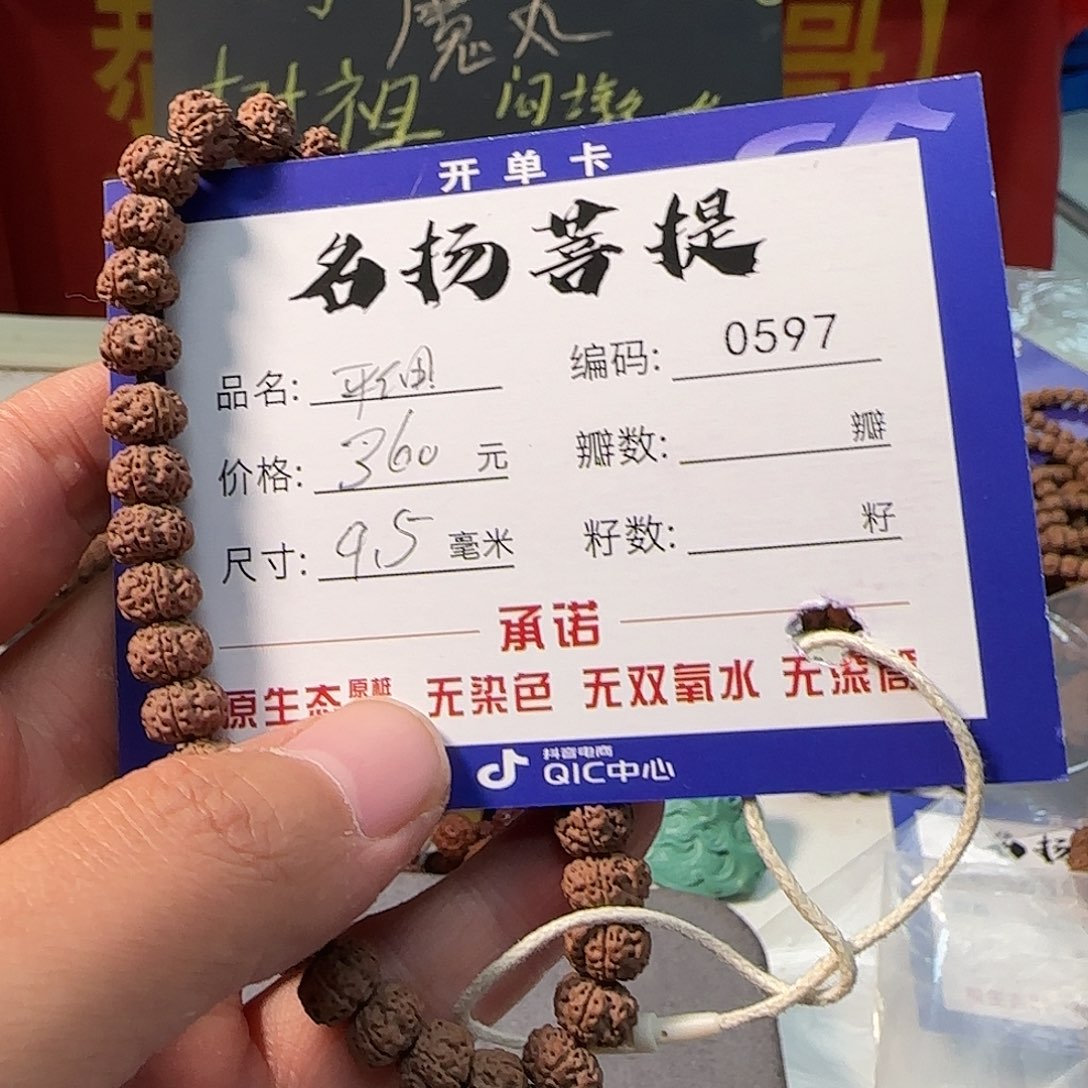 魔丸
树祖
哥
开单卡
名扬菩提
品名: 编码: 0597
价格: 360 元 瓣数: 瓣
尺寸: 9.5 毫米 籽数: 籽
承诺
原生态原桩 无染色 无双氧水 无滚筒
抖音电商
QIC中心
名扬